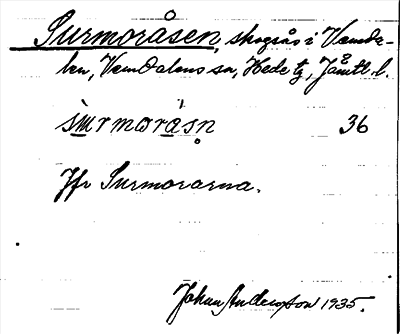 Surmoråsen, skogsås i Vemda-
len, Vemdalens sn, Hede tg, Jämtl. l.
su̇rmoråsn 36
Jfr Surmorarna.
Johan Anderzson 1935.